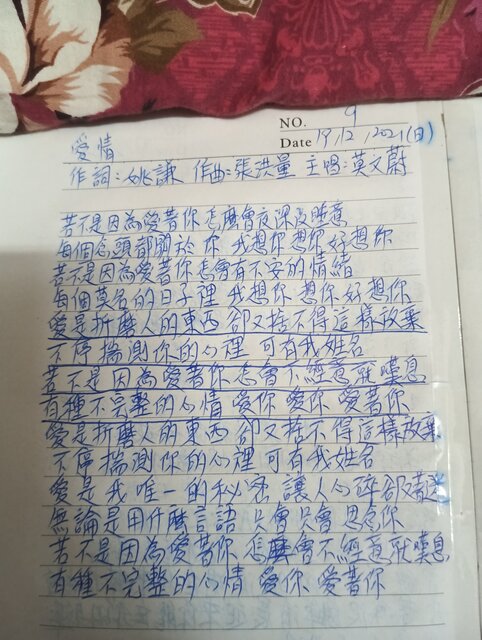 NO. 9
Date 19/12/2021(日)
愛情
作詞:姚謙 作曲:張洪量 主唱:莫文蔚
若不是因為愛著你 怎麼會夜深沒睡意
每個念頭都關於你 我想你 想你 好想你
若不是因為愛著你 怎會有不安的情緒
每個莫名的日子裡 我想你 想你 好想你
愛是折磨人的東西 卻又捨不得這樣放棄
不停揣測你的心裡 可有我姓名
若不是因為愛著你 怎會不經意就嘆息
有種不完整的心情 愛你 愛你 愛著你
愛是折磨人的東西 卻又捨不得這樣放棄
不停揣測你的心裡 可有我姓名
愛是我唯一的秘密 讓人心碎卻著迷
無論是用什麼言語 只會 只會 思念你
若不是因為愛著你 怎麼會不經意就嘆息
有種不完整的心情 愛你 愛著你